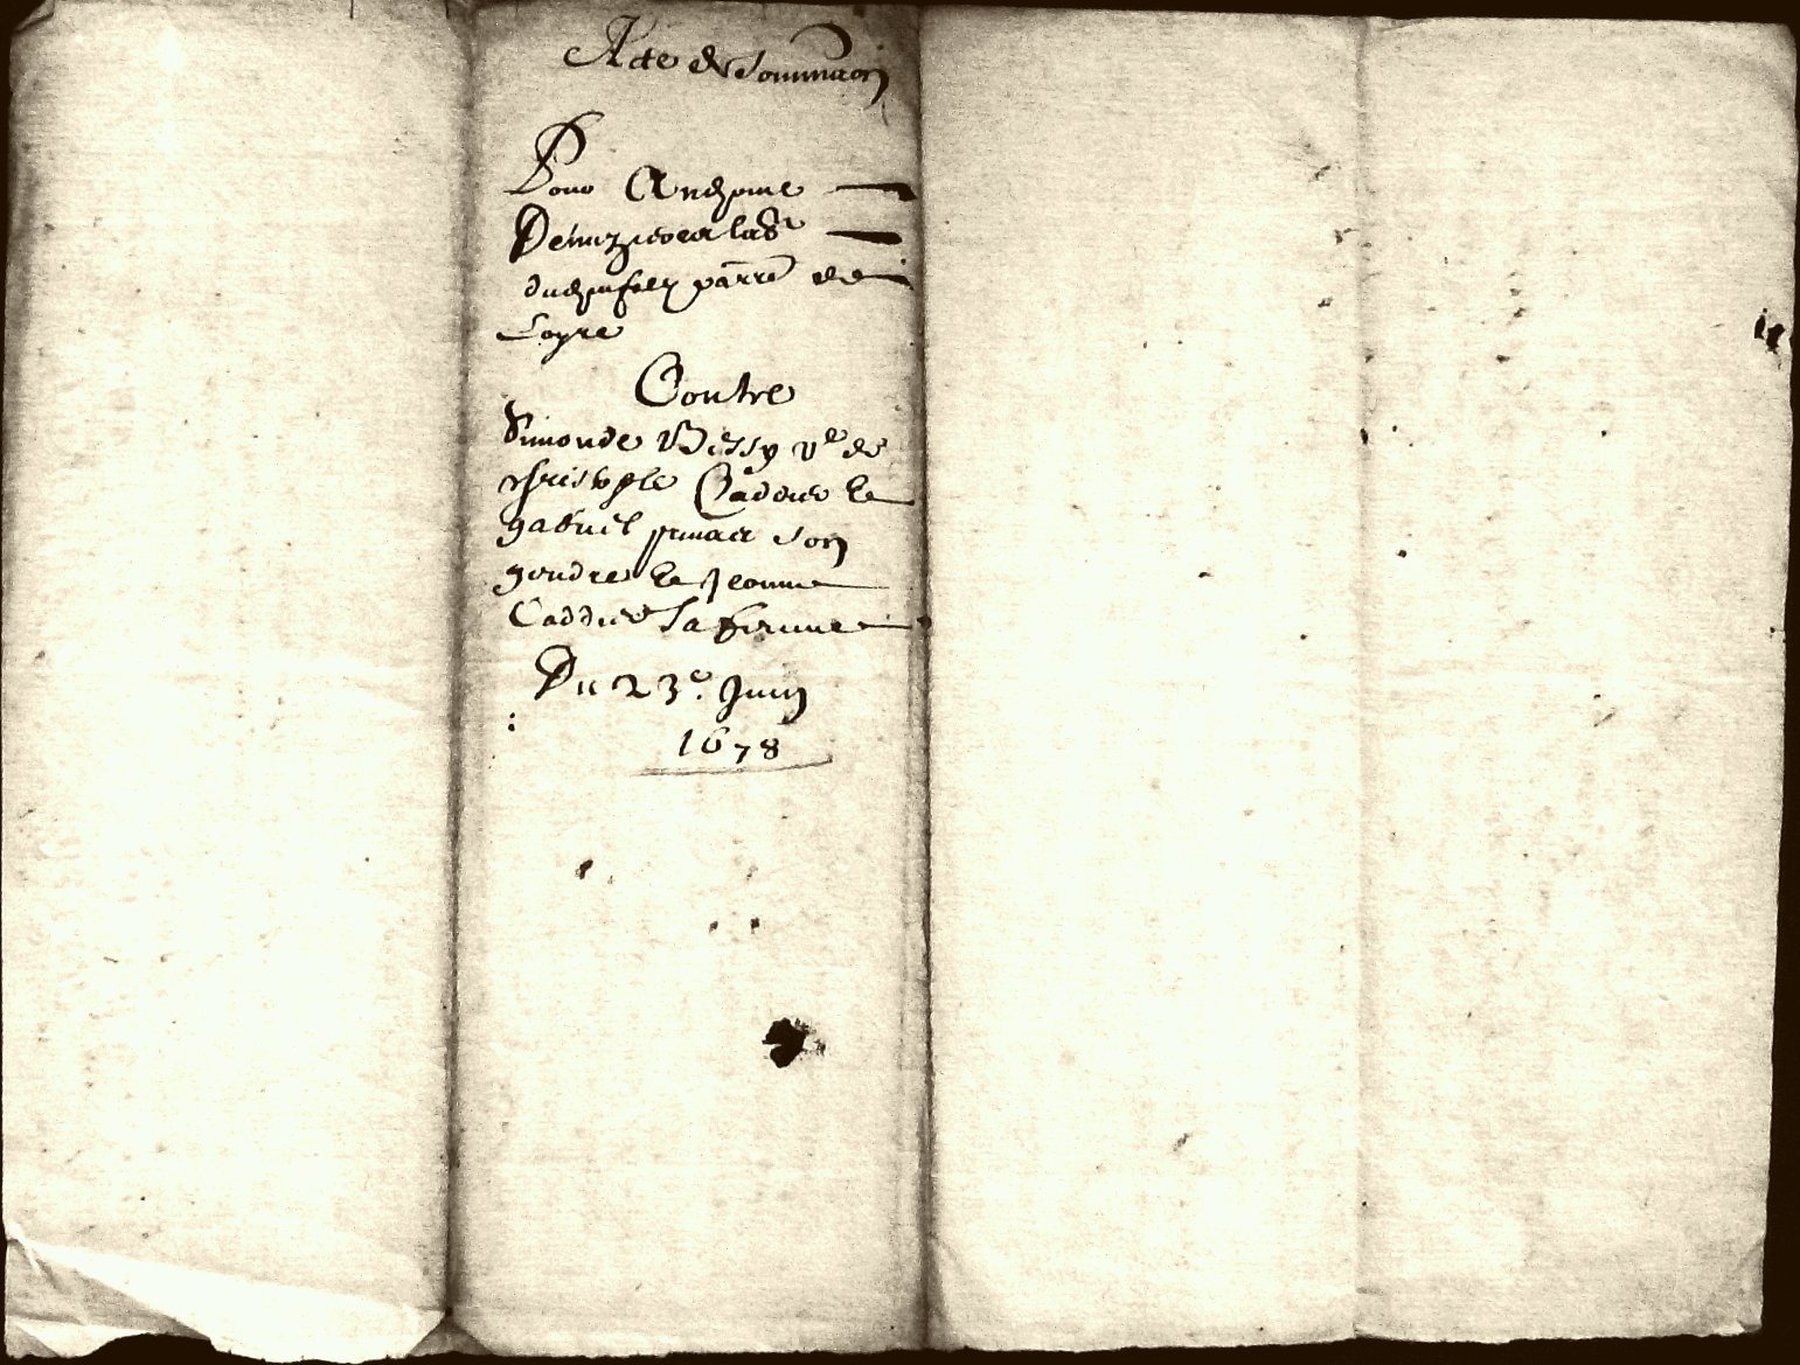 Acte de sommaon
Pour Anthoine
Demizieux labr
du parre de
Loyre
Contre
Simonde Bessy ve de
christople Caddier et
gabriel son
gendre et Jeanne
Caddier sa femme
Du 23e. Juin
1678